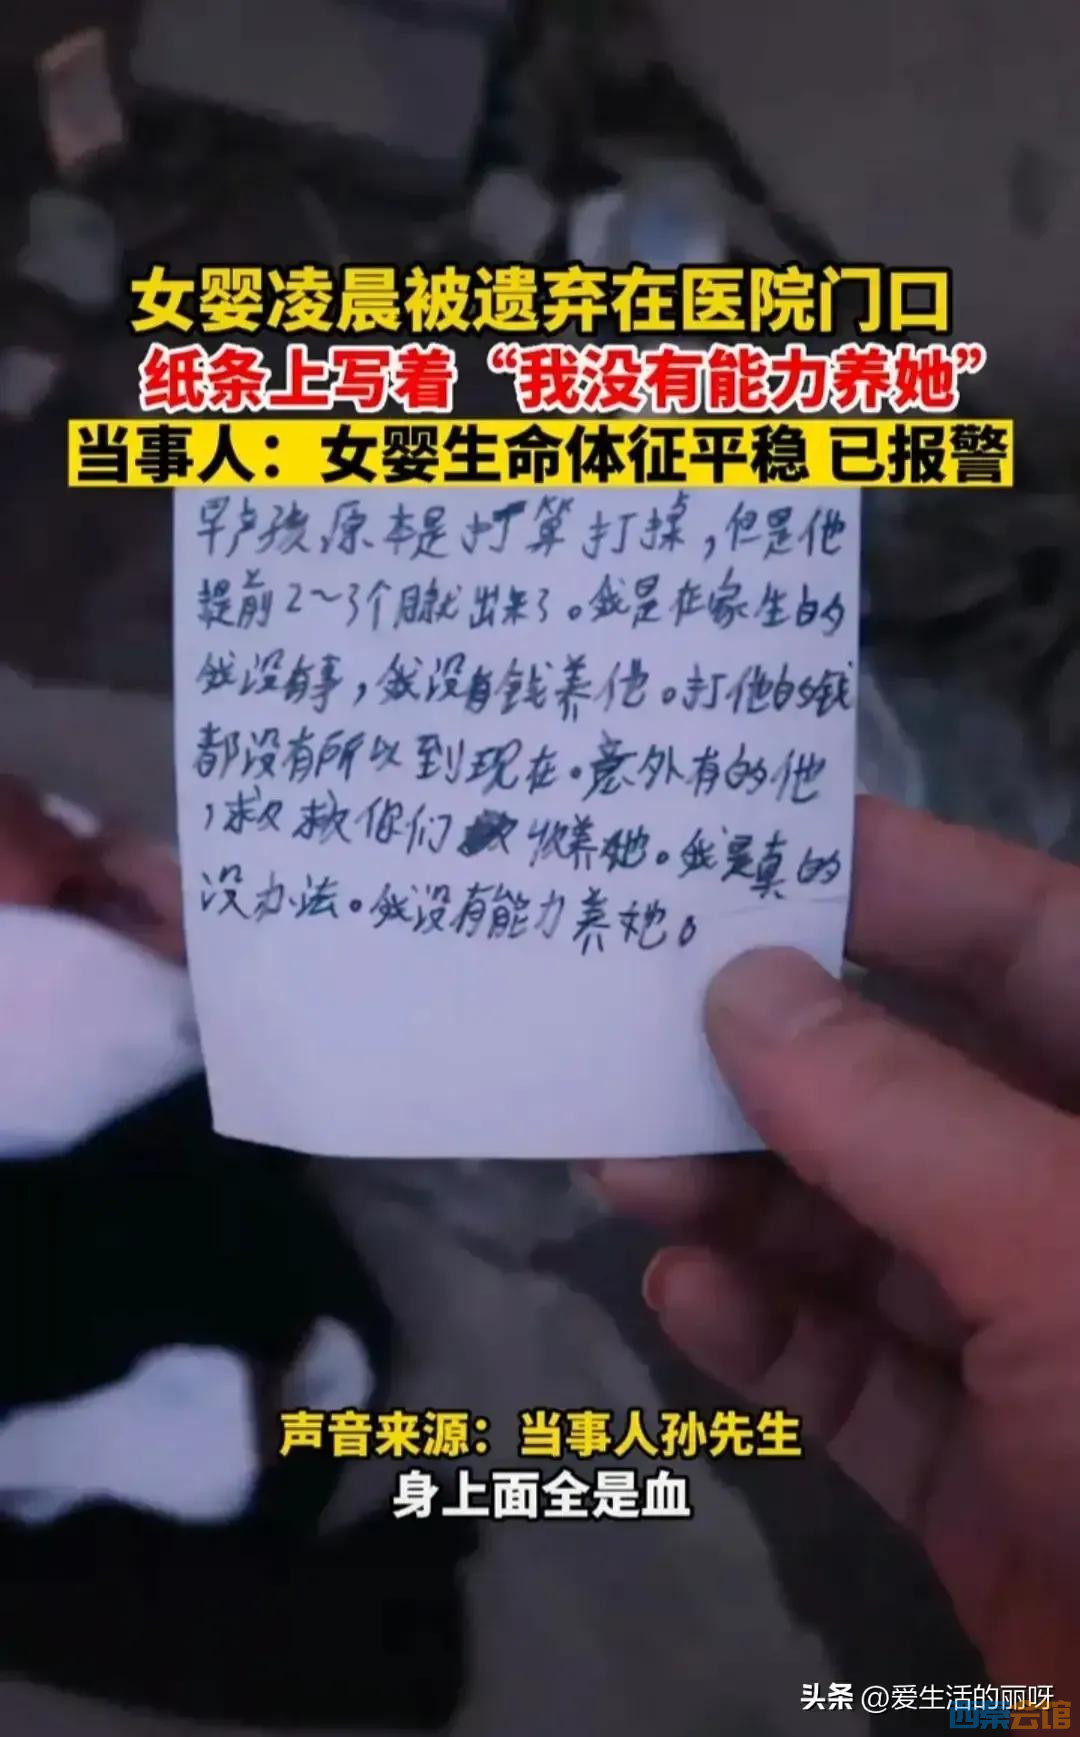 女婴凌晨被遗弃在医院门口
纸条上写着“我没有能力养她”
当事人：女婴生命体征平稳 已报警
早产孩,原本是打算打掉,但是他
提前2～3个月就出来了。我是在家生的
我没有事,我没有钱养他。打他的钱
都没有所以到现在。意外有的他
,求求你们收养她。我是真的
没办法。我没有能力养她。
声音来源：当事人孙先生
身上面全是血
头条 @爱生活的丽呀
四累会馆